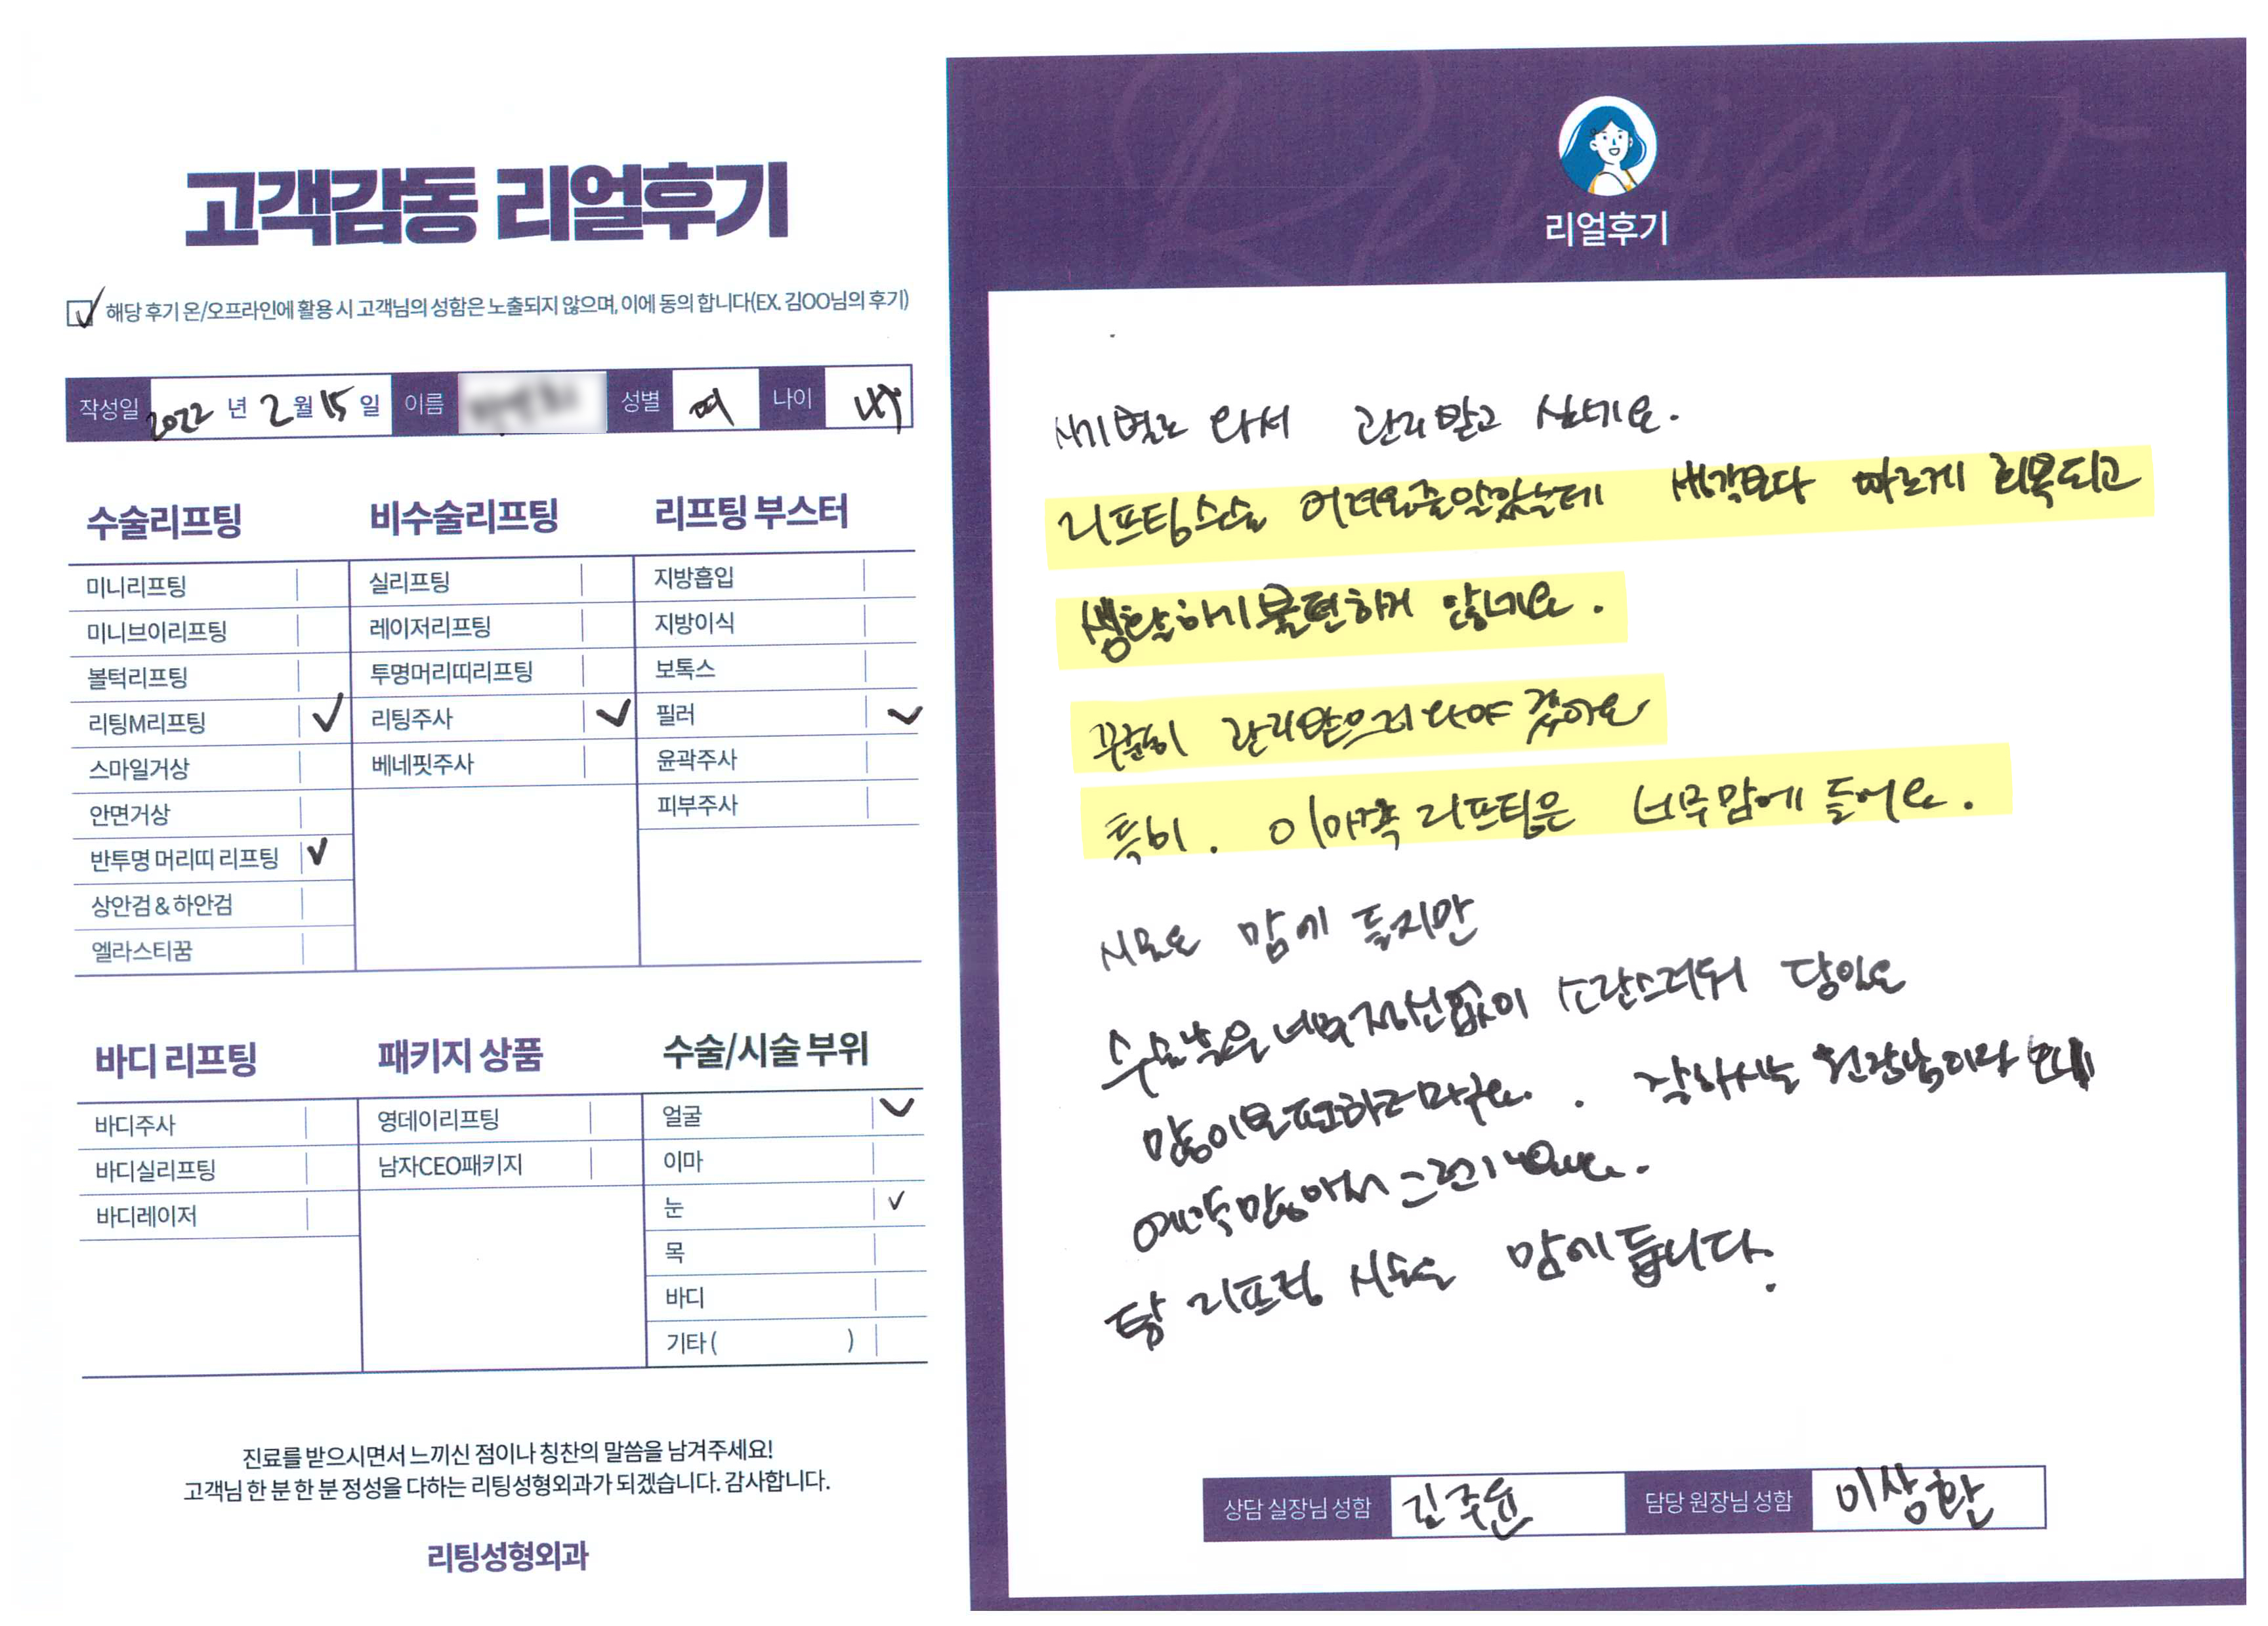 고객감동 리얼후기
해당 후기 온/오프라인에 활용 시 고객님의 성함은 노출되지 않으며, 이에 동의 합니다(EX. 김OO님의 후기)
작성일 2022 년 2 월 15 일 이름 성별 여 나이
수술리프팅
미니리프팅
미니브이리프팅
볼턱리프팅
리팅M리프팅
스마일거상
안면거상
반투명 머리띠 리프팅
상안검 & 하안검
엘라스티꿈
비수술리프팅
실리프팅
레이저리프팅
투명머리띠리프팅
리팅주사
베네핏주사
리프팅 부스터
지방흡입
지방이식
보톡스
필러
윤곽주사
피부주사
바디 리프팅
바디주사
바디실리프팅
바디레이저
패키지 상품
영데이리프팅
남자CEO패키지
수술/시술 부위
얼굴
이마
눈
목
바디
기타 ( )
진료를 받으시면서 느끼신 점이나 칭찬의 말씀을 남겨주세요!
고객님 한 분 한 분 정성을 다하는 리팅성형외과가 되겠습니다. 감사합니다.
리팅성형외과
Review
리얼후기
와서 관리받고
리프팅수술 어려운줄알았는데 생각보다 빠르게 회복되고
생활하기불편하게 않네요.
꾸준히 관리받으러와야 겠어요
특히. 이마쪽 리프팅은 너무맘에 들어요.
맘에 들지만
수술날은 너무정신없이 소란스러워 당일은
맘이불편하더라구요. 잘하시는 원장님이라
예약많아서
리프팅 시술은 맘에듭니다.
상담 실장님 성함 김주윤 담당 원장님 성함 이상환